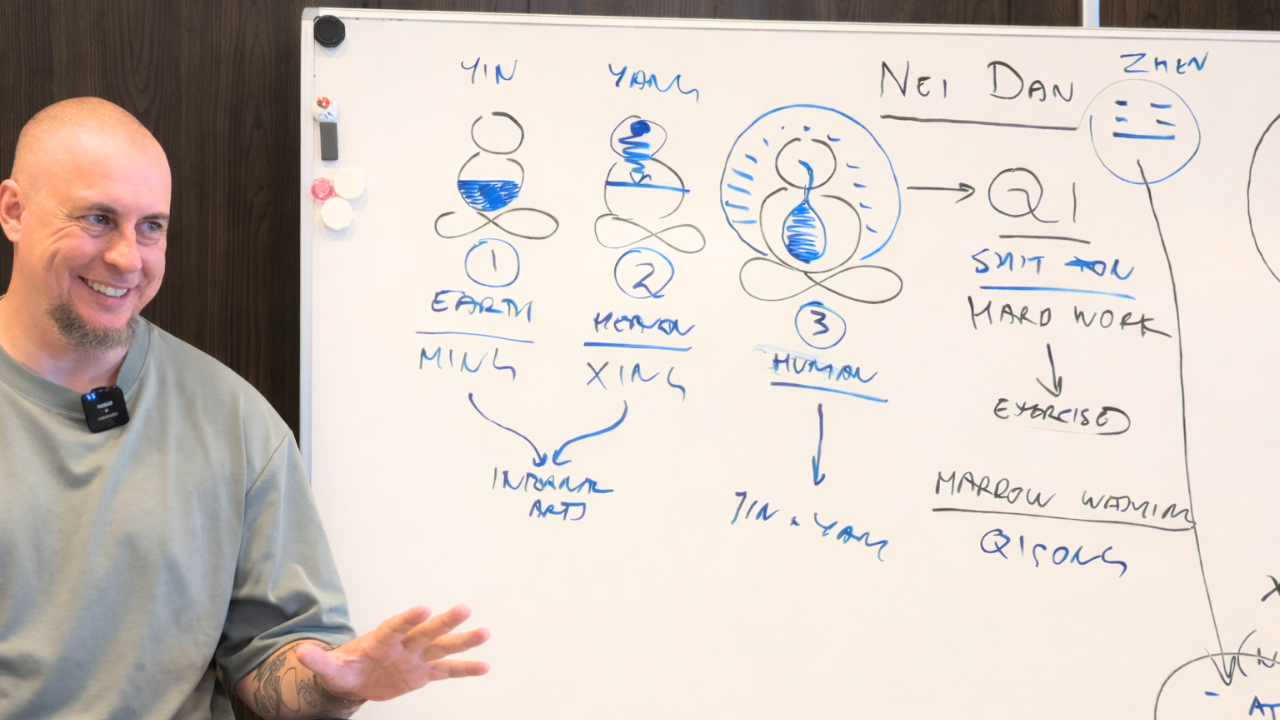 YIN
YANG
NEI DAN
ZHEN
QI
SHIT TON
HARD WORK
EXERCISED
1
EARTH
MING
2
HEAVEN
XING
3
HUMAN
INTERNAL
ARTS
YIN & YANG
MARROW WASHING
QIGONG
X
AT